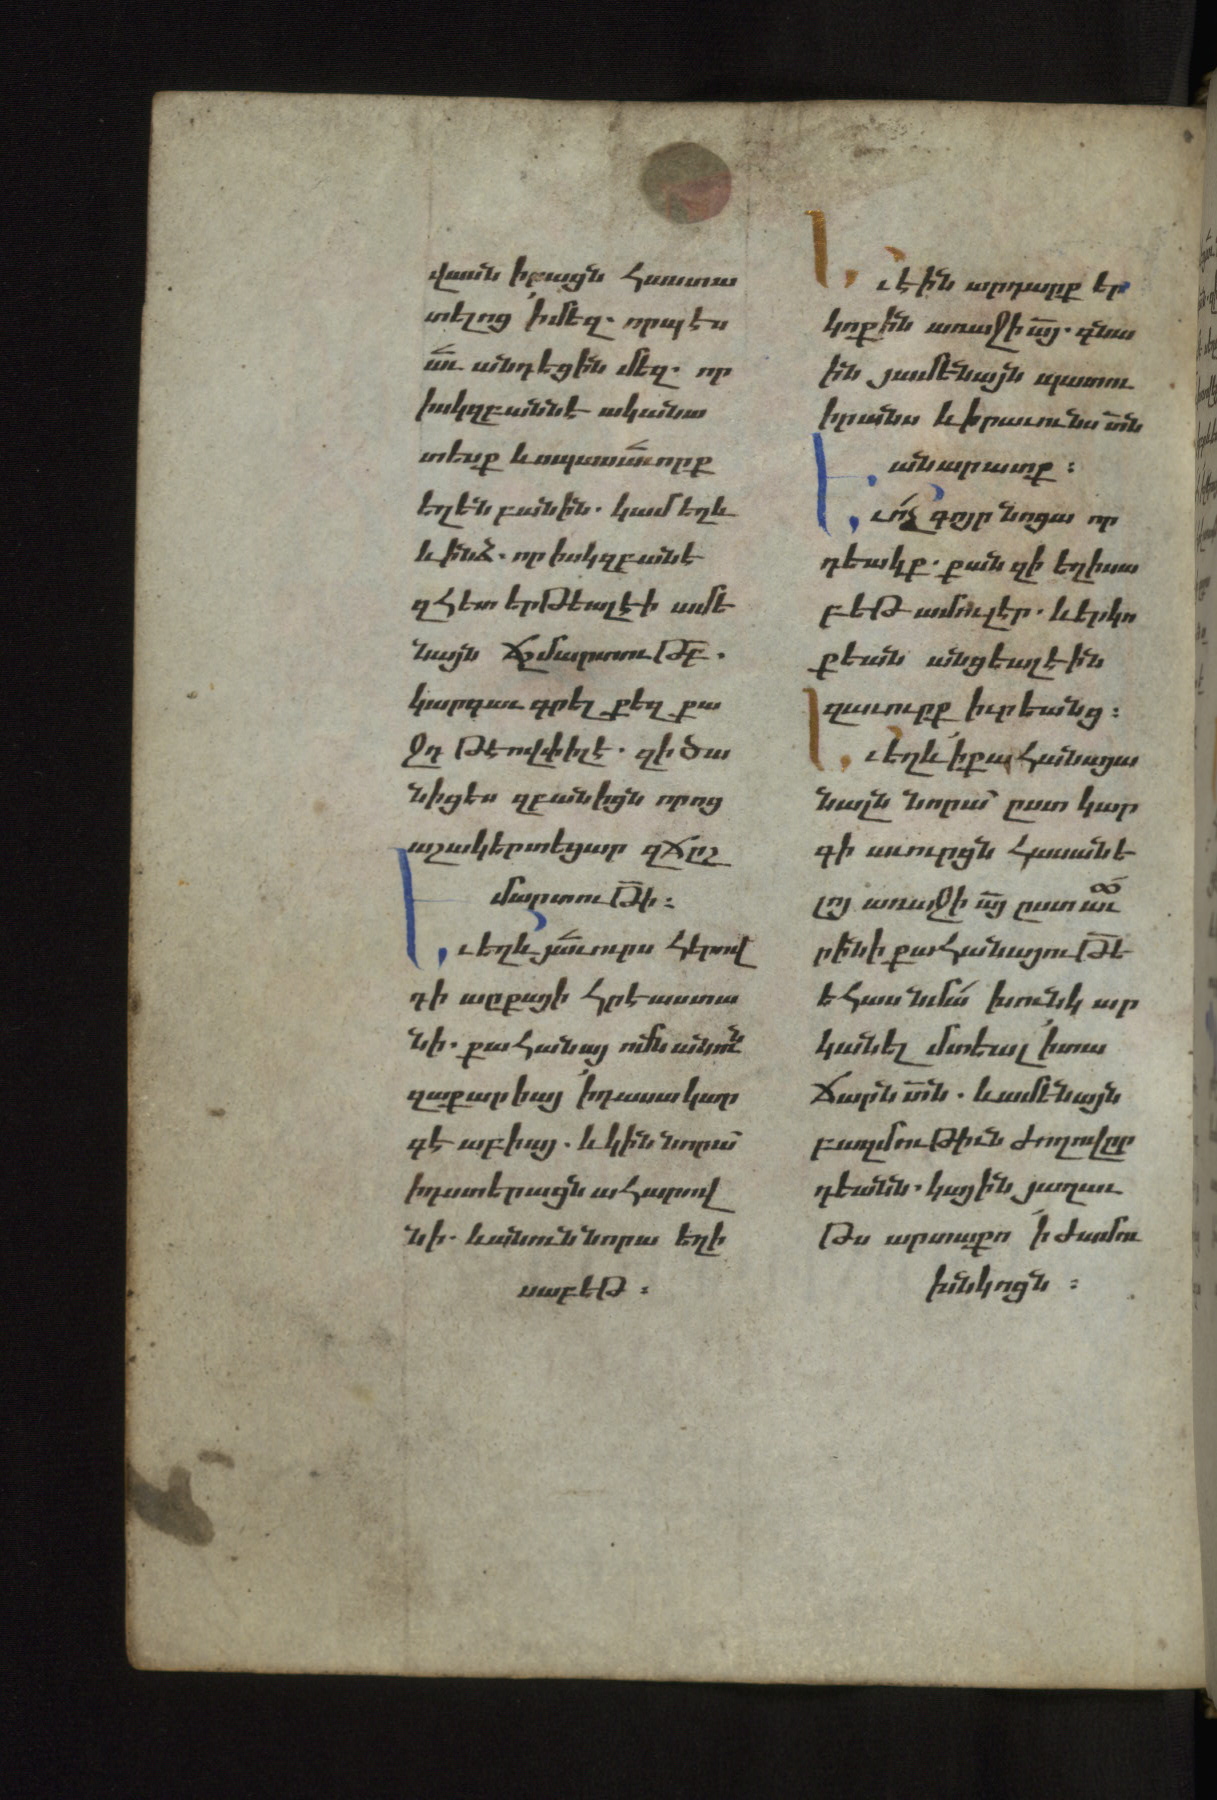 վասն իրացն հաստա
տելոց ՛ի մեզ. որպէս
աւ անդեցին մեզ. որ
իսկզբաննէ ականա
տեսք և սպասաւորք
եղեն բանին. կամ եղև
և ինձ. որ իսկզբանէ
զհետ երթեալէի ամե
նայն ճշմարտութբ.
կարգաւ գրել քեզ քա
ջդ թէովփիլէ. զի ծա
նիցես զբանիցն որոց
աշակերտեցար զճըշ
մարտութի։
Եւ եղև յաւուրս հերով
դի արքայի հրէաստա
նի. քահանայ ոմն անուն
զաքարիայ ՛ի դասակար
գէ աբիայ. և կին նորա՝
ի դստերացն ահարով
նի. և անուն նորա եղի
սաբեթ։
Եւ էին արդարք եր
կոքին առաջի այ. գնա
ին յամենայն պատու
իրանս և իրաւունս տն
անարատք։
Եւ ոչ գոյր նոցա որ
դեակք. քանզի եղիսա
բեթ ամուլ էր. և երկո
քեան անցեալ էին
զաւուրբք իւրեանց։
Եւ եղև ՛ի քահանայա
նալն նորա՝ ըստ կար
գի աւուրցն հասանե
լոյ առաջի այ ըստ աւ
րինի քահանայութե
եհաս նմա խունկ ար
կանել մտեալ ՛ի տա
ճարն տն. և ամենայն
բազմութիւն ժողովըր
դեանն. կային յաղաւ
թս արտաքո ՛ի ժամու
խնկոցն ։